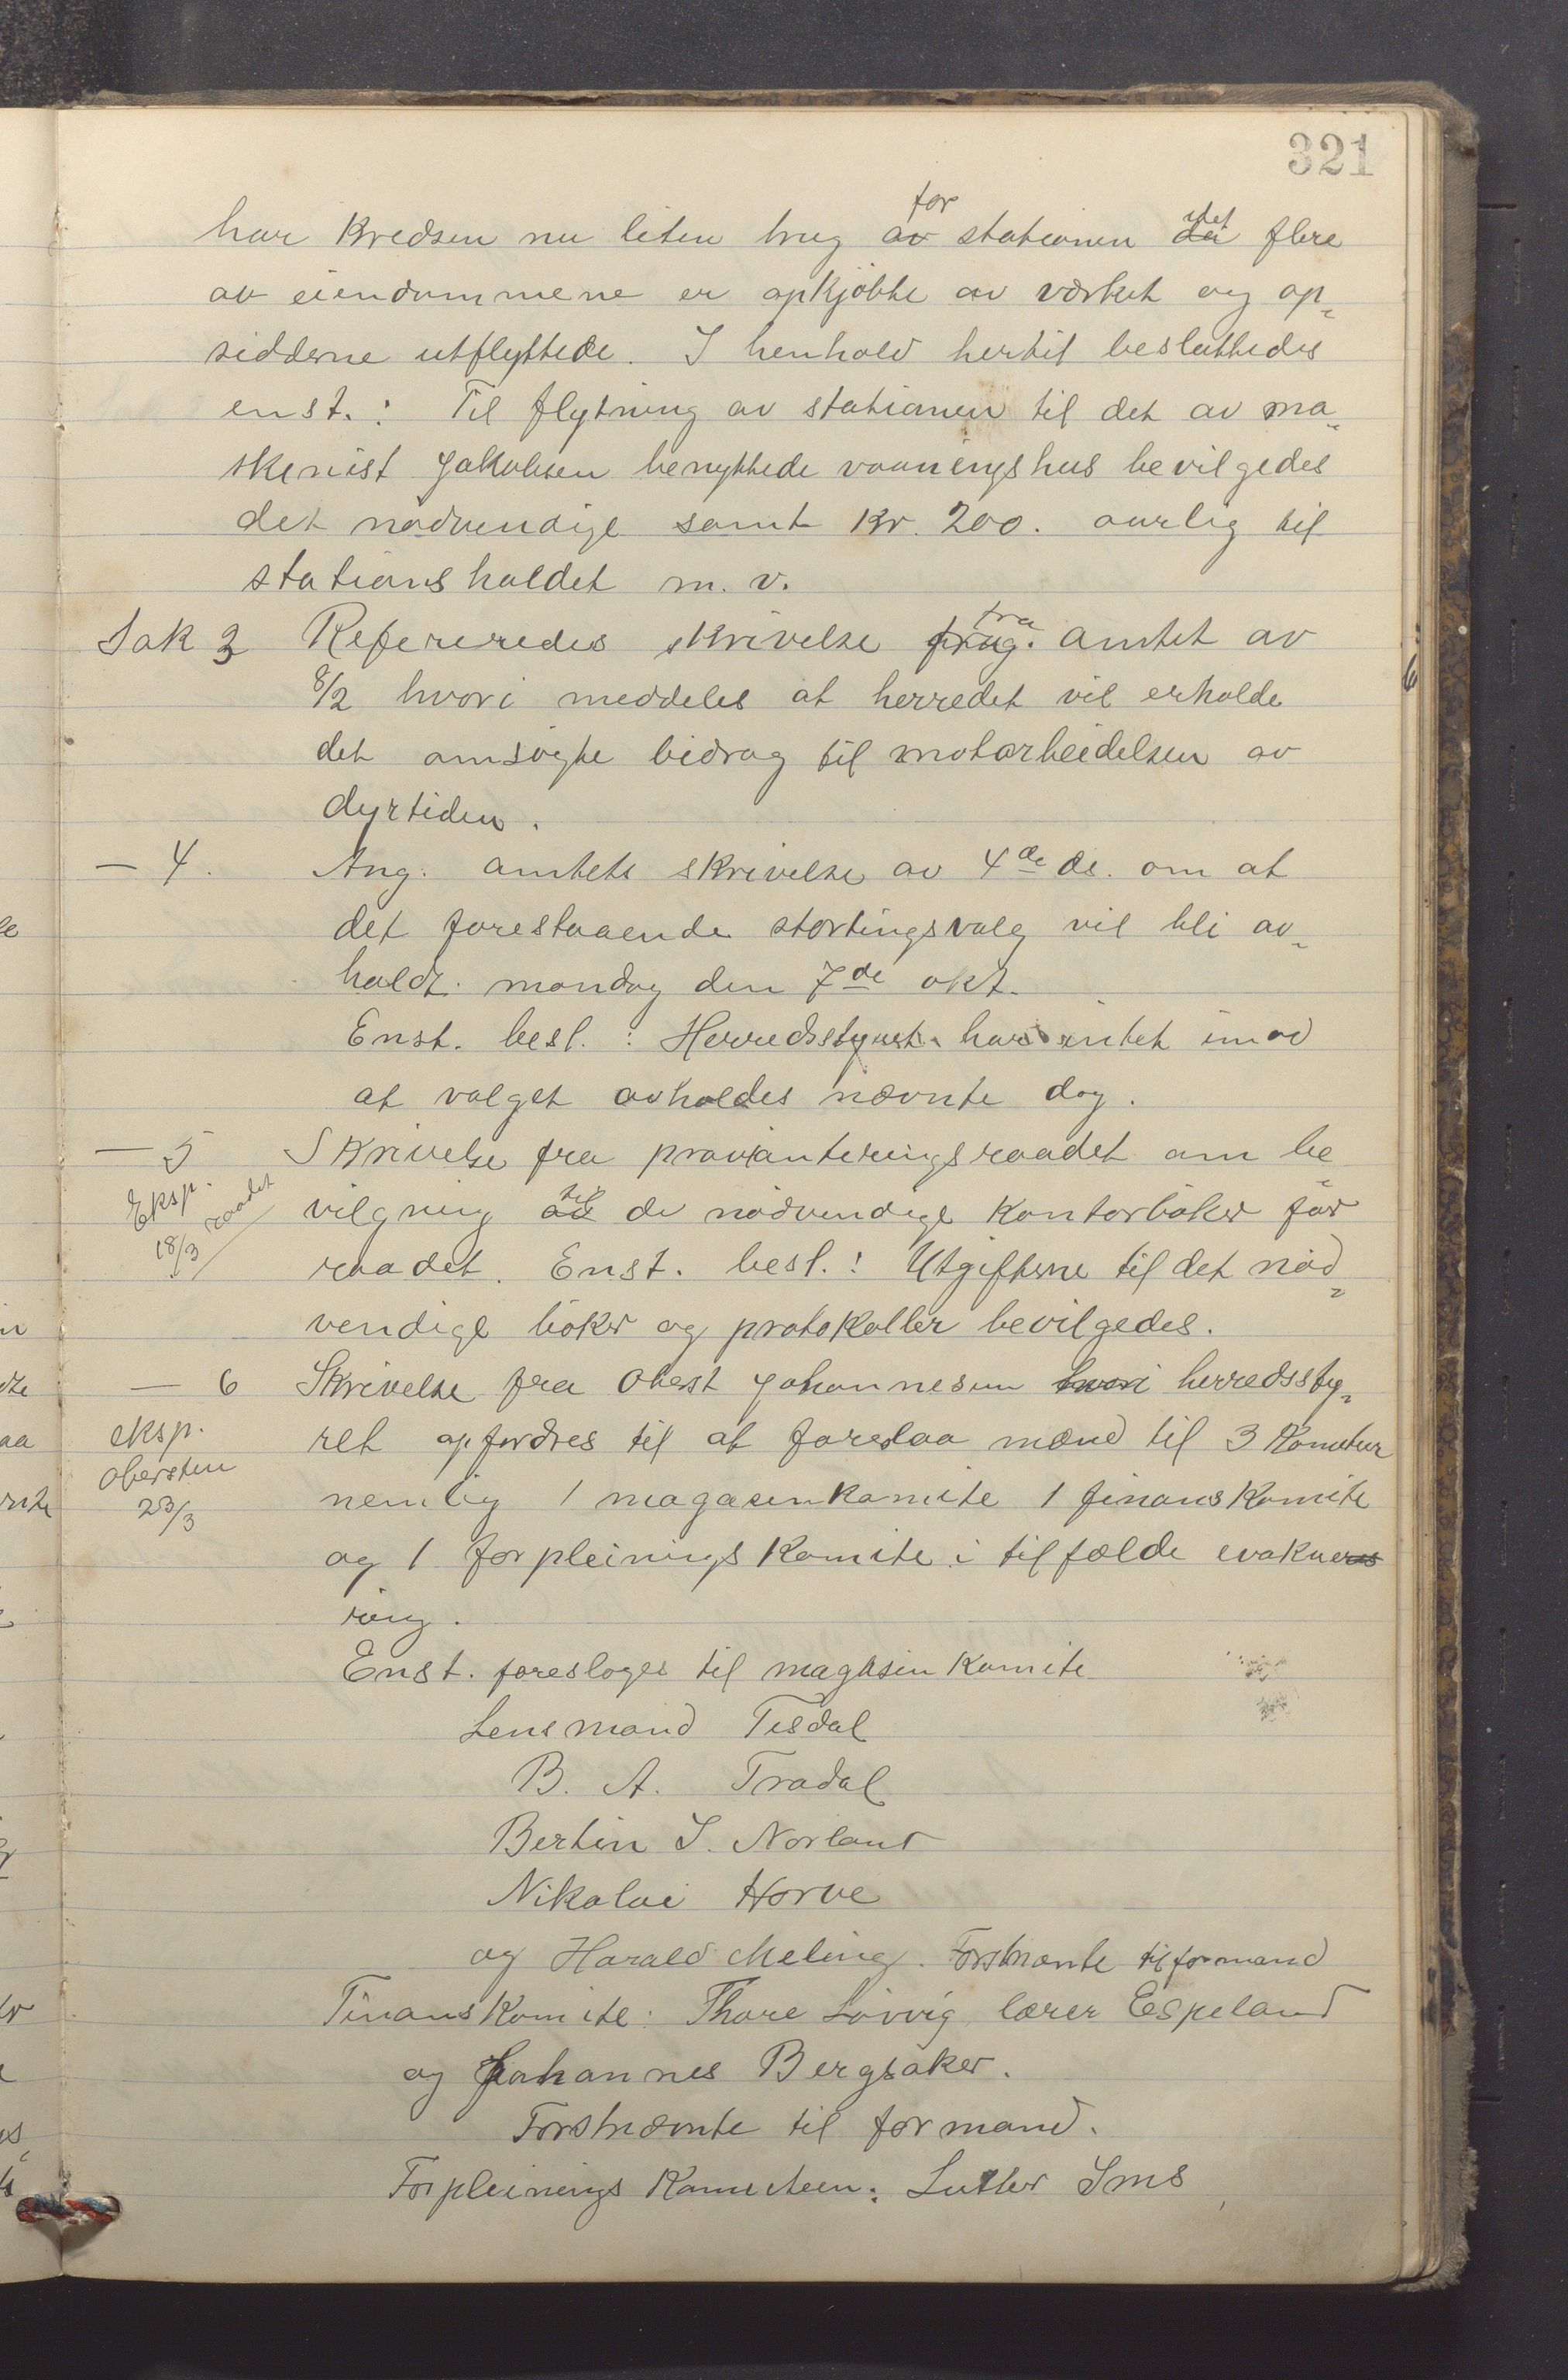 321
har kredsen nu liten brug for stationen idet flere
av eiendommene er opkjøbte av værket og op-
sidderne utflyttede. I henhold hertil besluttedes
enst.: Til flytning av stationen til det av ma-
skinist Jakobsen benyttede vaaningshus bevilgedes
det nødvendige samt Kr. 200. aarlig til
stationsholdet m. v.
Sak 3 Refereredes skrivelse fra amtet av
8/2 hvori meddeles at herredet vil erholde
det ansøgte bidrag til motarbeidelsen av
dyrtiden.
— 4. Ang. amtets skrivelse av 4de ds. om at
det forestaaende stortingsvalg vil bli av-
holdt mandag den 7de okt.
Enst. besl.: Herredsstyret har intet imod
at valget avholdes nævnte dag.
— 5 Skrivelse fra provianteringsraadet om be-
Eksp. raadet 18/3
vilgning til de nødvendige kontorbøker for
raadet. Enst. besl.: Utgifterne til det nød-
vendige bøker og protokoller bevilgedes.
— 6 Skrivelse fra Oberst Johannesen hvori herredssty-
eksp. obersten 23/3
ret opfordres til at foreslaa mænd til 3 Komiteer
nemlig 1 magasinkomite 1 finanskomite
og 1 forpleiningskomite i tilfælde evakue-
ring.
Enst. foresloges til magasinkomite
Lensmand Tisdal
B. A. Tradal
Bertin S. Norland
Nikolai Horve
og Harald Meling. Førstnævnte til formand
Finanskomite: Thore Løvvig lærer Espeland
og Johannes Bergsaker.
Førstnævnte til formand.
Forpleinings Komiteen: Luther Sms